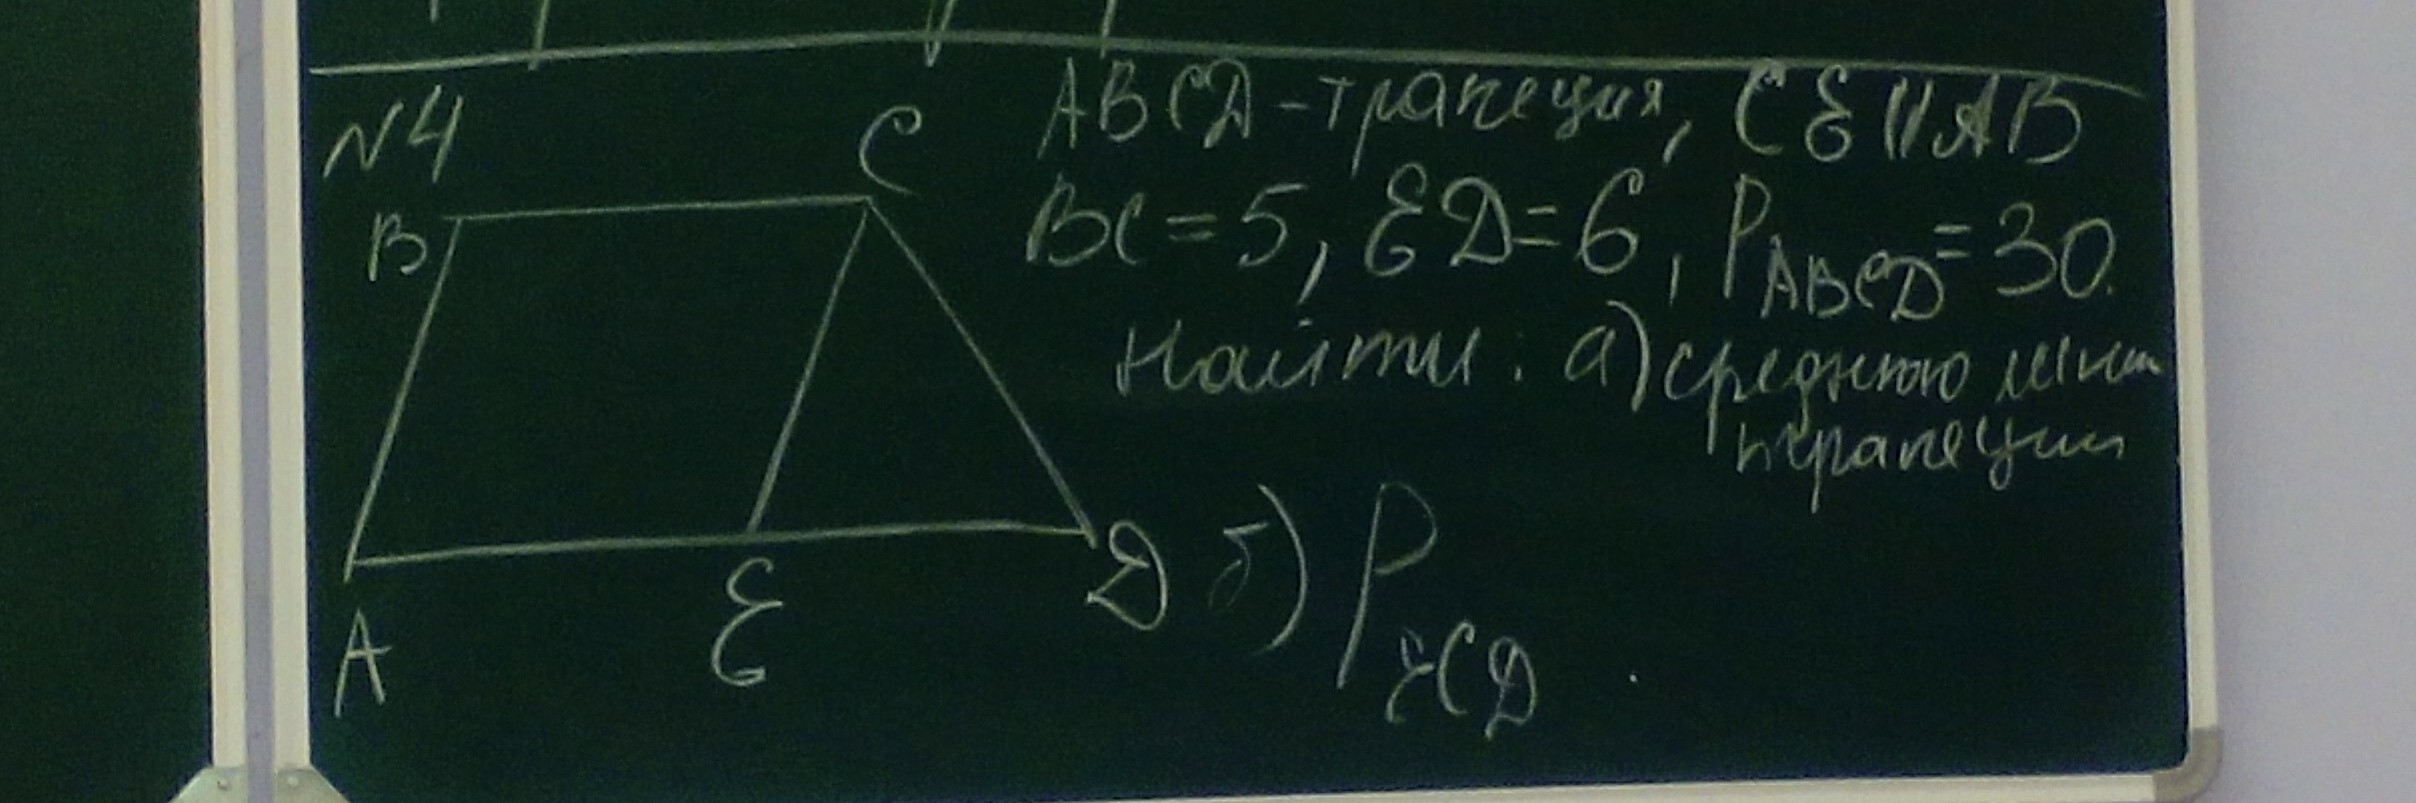 N4
ABCD - трапеция, CE || AB
BC = 5, ED = 6, P ABCD = 30.
Найти: а) среднюю линию
трапеции
б) P ECD.
B
C
A
E
D